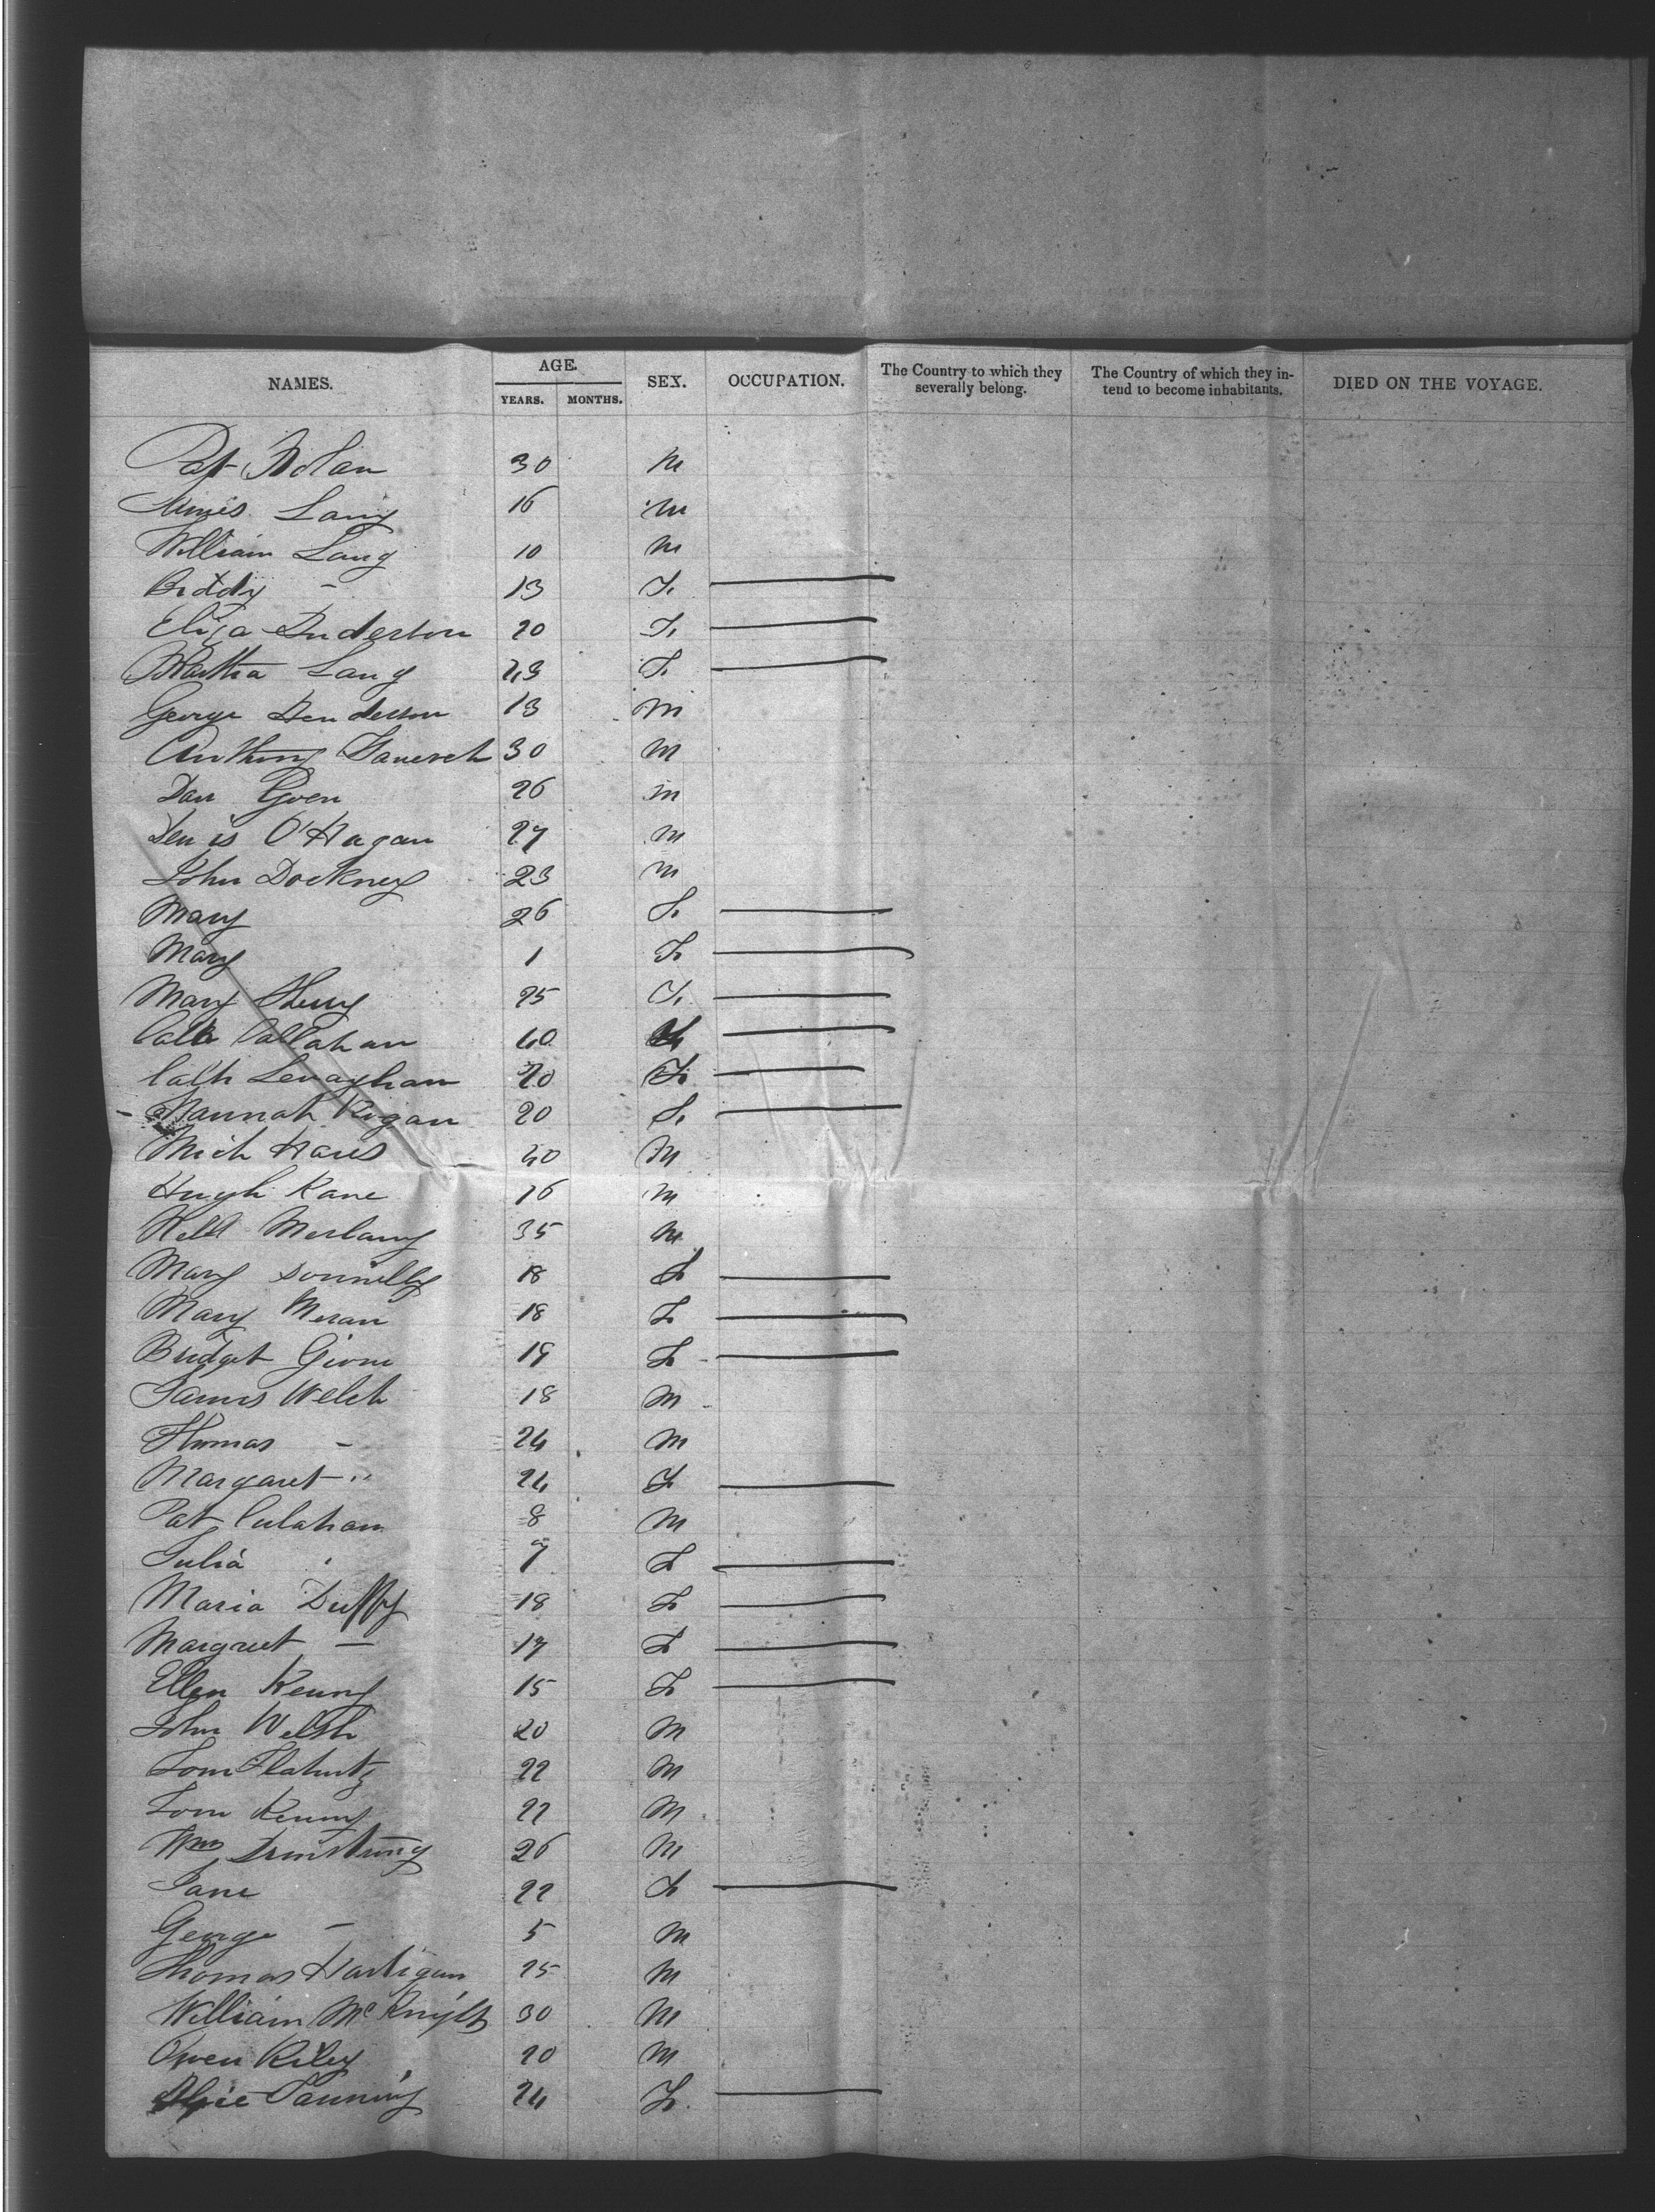 NAMES. AGE. SEX. OCCUPATION. The Country to which they severally belong. The Country of which they intend to become inhabitants. DIED ON THE VOYAGE.
YEARS. MONTHS.
Pat Nolan 30 M
James Lang 16 M
William Lang 10 M
Biddy - 13 F.
Eliza Anderson 20 F.
Martha Lang 23 F.
George Henderson 13 M
Anthony 30 M
Dan 26 M
Denis O'Hagan 27 M
John Dockney 23 M
Mary 26 F.
Mary 1 F.
Mary 25 F.
Cath Callahan 40
Cath Lenaghan 20 F.
- Hannah Rogan 20 F.
Mich 40 M
Hugh Kane 26 M
35 M
Mary Donnelly 18 F
Mary Meran 18 F
Bridget 19 F
James Welch 18 M
Thomas - 24 M
Margaret " 24 F
Pat Culahan 8 M
Julia 7 F
Maria Duffy 18 F
Margreet — 17 F
Ellen Kenny 15 F
John Welsh 20 M
Tom Flahuty 22 M
Tom Kenny 22 M
Wm Armstrong 26 M
Jane 22 F
George - 5 M
Thomas Hartigan 25 M
William McKnight 30 M
Owen Riley 20 M
Alice Fanning 24 F.